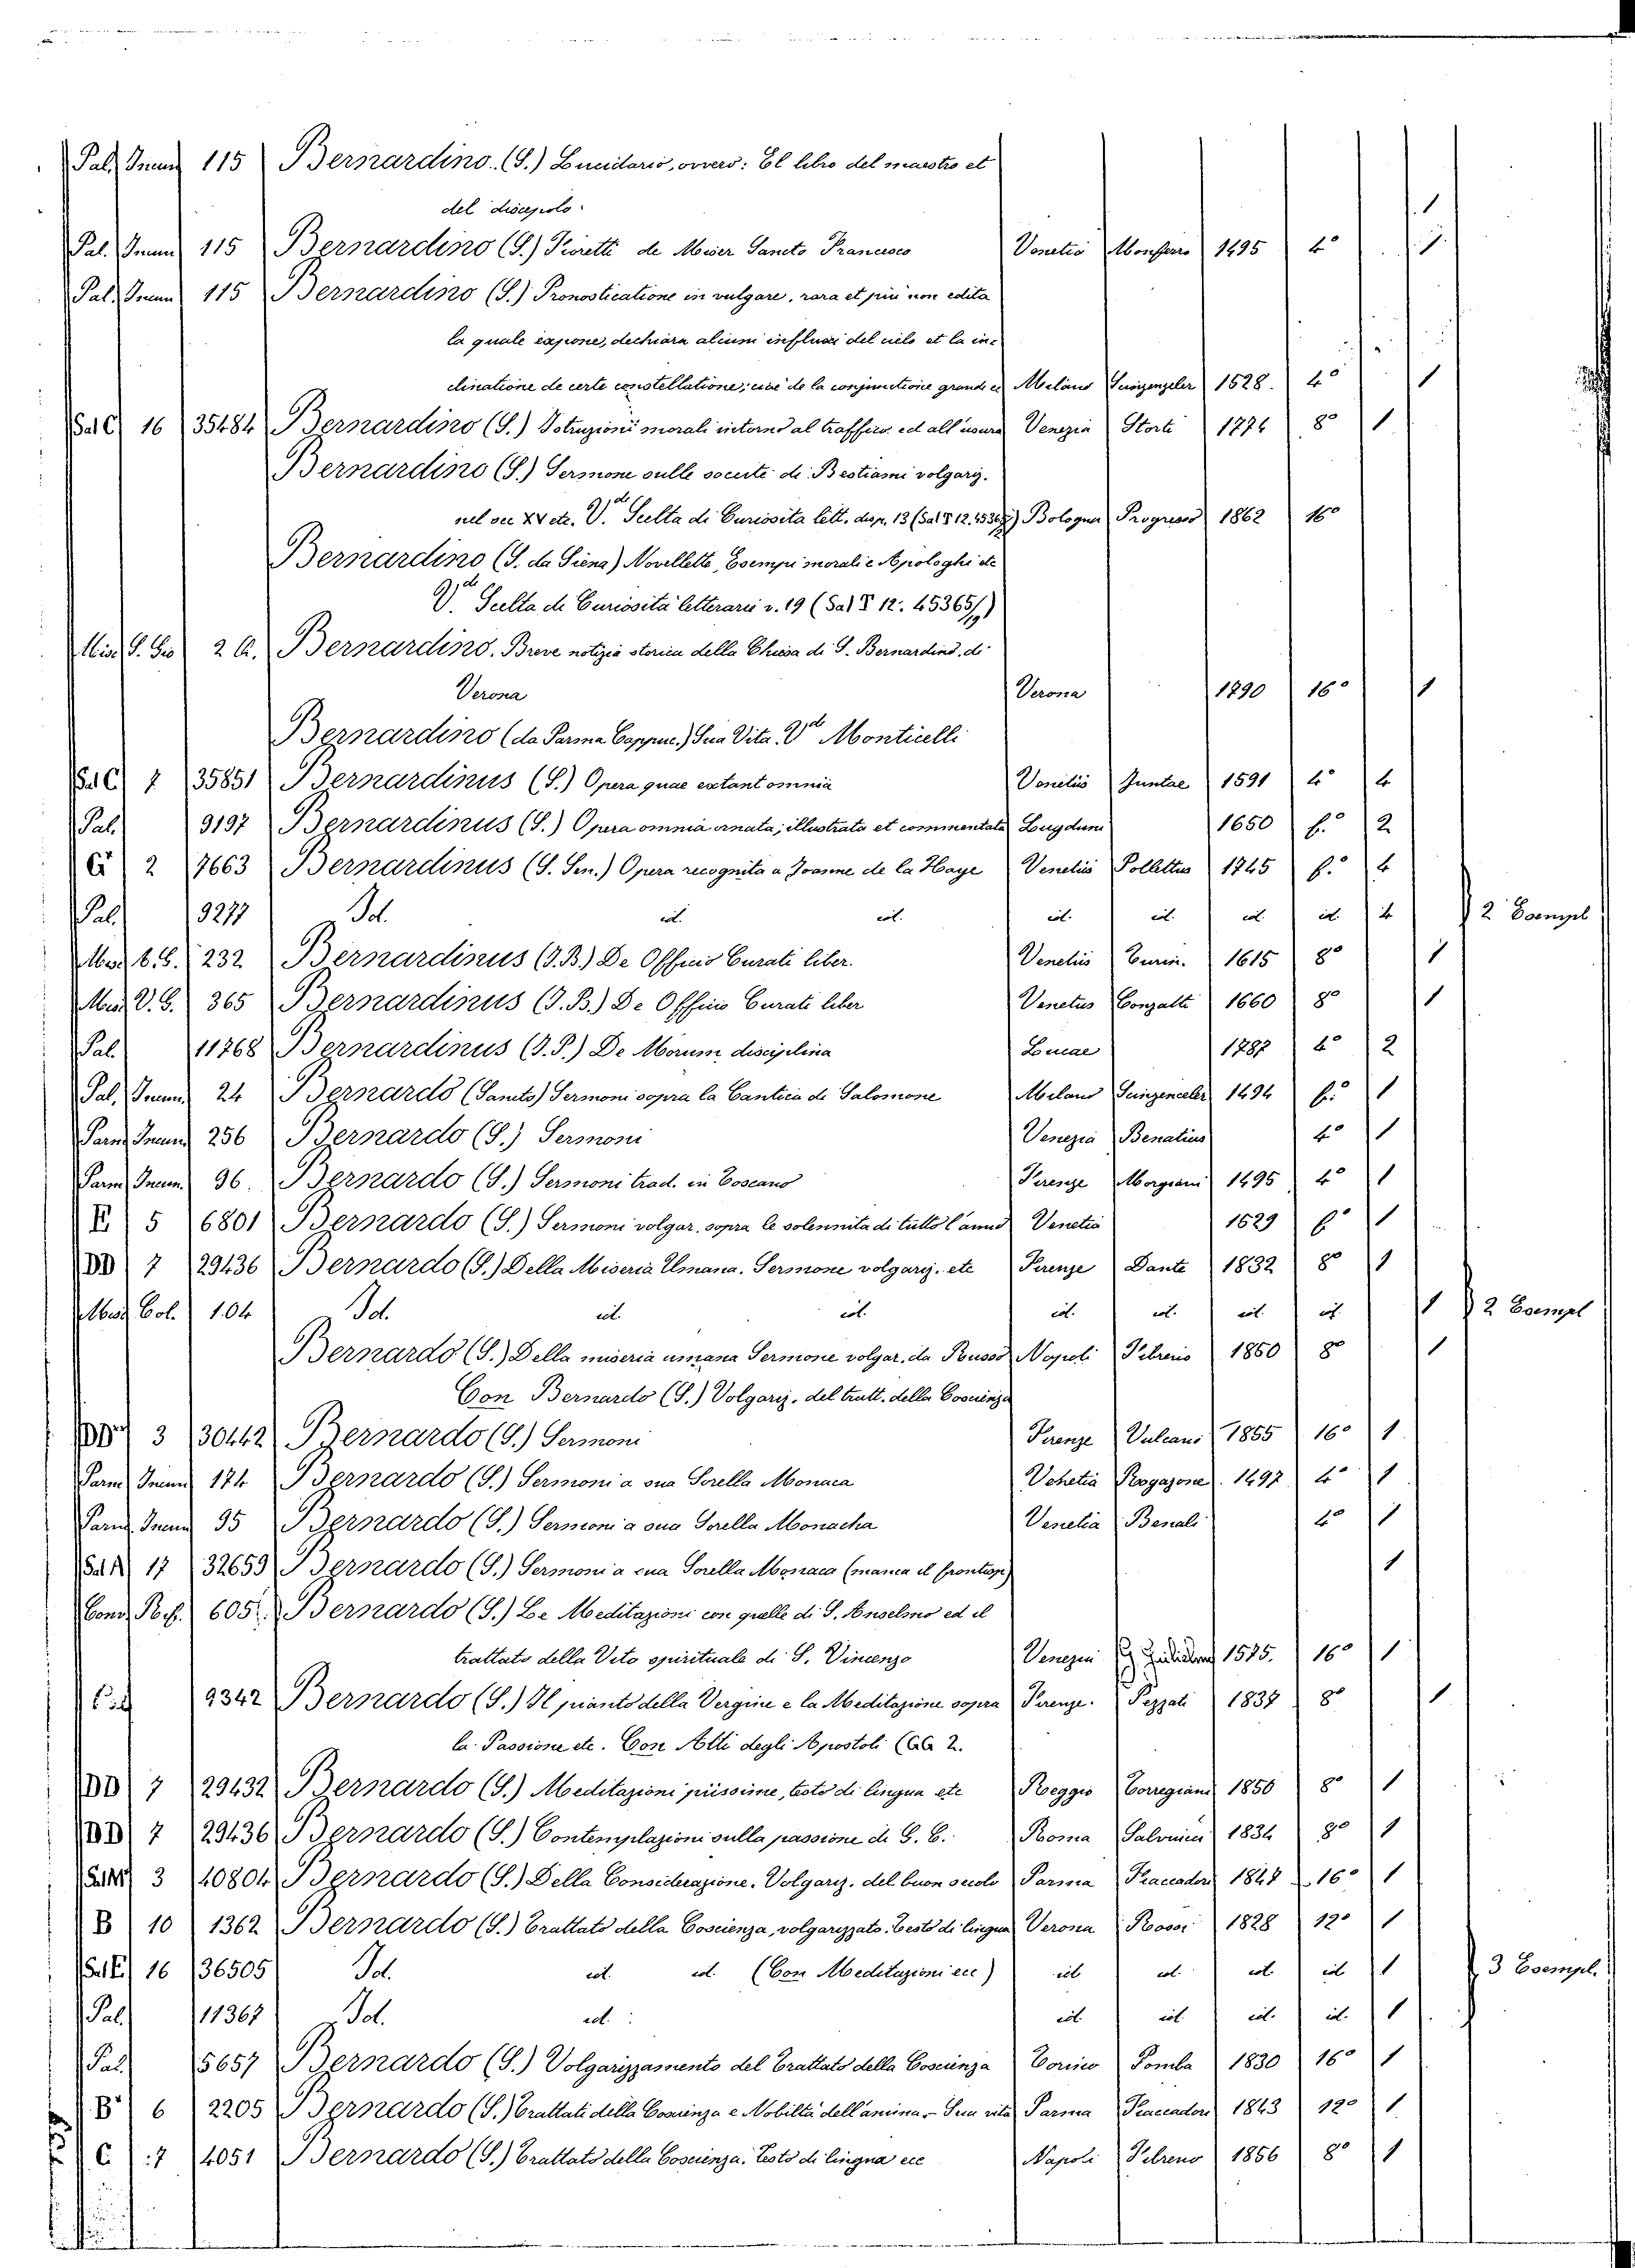 Pal. Incun 115 Bernardino (S.) Lucidario, ovvero: El libro del maestro et
del discepolo 1
Pal. Incun 115 Bernardino (S.) Fioretti de Meser Sancto Francesco Venetia Monferro 1495 4° 1
Pal. Incun 115 Bernardino (S.) Pronosticatione in vulgare, rara et più non edita
la quale expone, dechiara alcuni influxi del cielo et la in=
clinatione de certe constellatione; cioè de la conjunctione grande ec Milano Scinzenzeler 1528. 4° 1
Sal C 16 35484 Bernardino (S.) Istruzioni morali intorno al traffico ed all'usura Venezia Storti 1774 8° 1
Bernardino (S.) Sermone sulle soccite di Bestiami volgariz.
nel sec XV etc. V.de Scelta di Curiosità lett. disp. 13 (Sal § 12. 45365/) Bologna Progresso 1862 16°
Bernardino (S. da Siena) Novellette, Esempi morali e Apologhi etc
V.de Scelta di Curiosità letterarie v. 19 (Sal § 12. 45365/19)
Misc. S. Gio 2 A. Bernardino. Breve notizia storica della Chiesa di S. Bernardino di
Verona Verona 1790 16° 1
Bernardino (da Parma Cappuc.) Sua Vita. V.de Monticelli
Sal C 7 35851 Bernardinus (S.) Opera quae extant omnia Venetiis Juntae 1591 4° 4
Pal. 9197 Bernardinus (S.) Opera omnia ornata; illustrata et commentata Lugduni 1650 f.° 2
G 2 7663 Bernardinus (S. Sen.) Opera recognita a Joanne de la Haye Venetiis Pollettus 1745 f.° 4
Pal. 9277 Id. id. id. id. id. id. id. 4 2 Esempl
Misc. E. B. 232 Bernardinus (J.B.) De Officio Curati liber. Venetiis Turin. 1615 8° 1
Misc. V. E. 365 Bernardinus (J.B.) De Officio Curati liber Venetiis Conzatti 1660 8° 1
Pal. 11768 Bernardinus (J.P.) De Morum disciplina Lucae 1787 4° 2
Pal. Incun 24 Bernardo (Sancto) Sermoni sopra la Cantica di Salomone Milano Scinzenceler 1494 f.° 1
Parm Incun 256 Bernardo (S.) Sermoni Venezia Benatius 4° 1
Parm Incun. 96. Bernardo (S.) Sermoni trad. in Toscano Firenze Morgiani 1495 4° 1
E 5 6801 Bernardo (S.) Sermoni volgar. sopra le solennità di tutto l'anno Venetia 1529 f° 1
DD 7 29436 Bernardo (S.) Della Miseria Umana. Sermone volgariz. etc Firenze Dante 1832 8° 1
Misc. Col. 104 Id. id. id. id. id. id. id. 1 2 Esempl
Bernardo (S.) Della miseria umana Sermone volgar. da Napoli Fibreno 1850 8° 1
Con Bernardo (S.) Volgariz. del tratt. della Coscienza
3 30442 Bernardo (S.) Sermoni Firenze Vulcani 1855 16° 1
Parm Incun 174 Bernardo (S.) Sermoni a sua Sorella Monaca Venetia Rogazone 1497 4° 1
Parm. Incun 95 Bernardo (S.) Sermoni a sua Sorella Monacha Venetia Benali 4° 1
Sal A 17 32659 Bernardo (S.) Sermoni a sua Sorella Monaca (manca il frontisp) 1
605 Bernardo (S.) Le Meditazioni con quelle di S. Anselmo ed il
trattato della Vita spirituale di S. Vincenzo Venezia 1575. 16° 1
9342 Bernardo (S.) Il pianto della Vergine e la Meditazione sopra Firenze. Pezzati 1837 8° 1
la Passione etc. Con Atti degli Apostoli (GG 2.
DD 7 29432 Bernardo (S.) Meditazioni piissime, testo di lingua etc Reggio Torregiani 1850 8° 1
DD 7 29436 Bernardo (S.) Contemplazioni sulla passione di G. C. Roma Salvioni 1834 8° 1
3 40804 Bernardo (S.) Della Considerazione. Volgariz. del buon secolo Parma Fiaccadori 1847 16° 1
B 10 1362 Bernardo (S.) Trattato della Coscienza, volgarizzato. Testo di lingua Verona Rossi 1828 12° 1
Sal E 16 36505 Id. id. id. (Con Meditazioni ecc) id id. id. id 1 3 Esempl.
Pal. 11367 Id. id. id. id. id. id. 1
Pal. 5657 Bernardo (S.) Volgarizzamento del Trattato della Coscienza Torino Pomba 1830 16° 1
B 6 2205 Bernardo (S.) Trattati della Coscienza e Nobiltà dell'anima. - Sua vita Parma Fiaccadori 1843 12° 1
C 7 4051 Bernardo (S.) Trattato della Coscienza. Testo di lingua ecc Napoli Fibreno 1856 8° 1